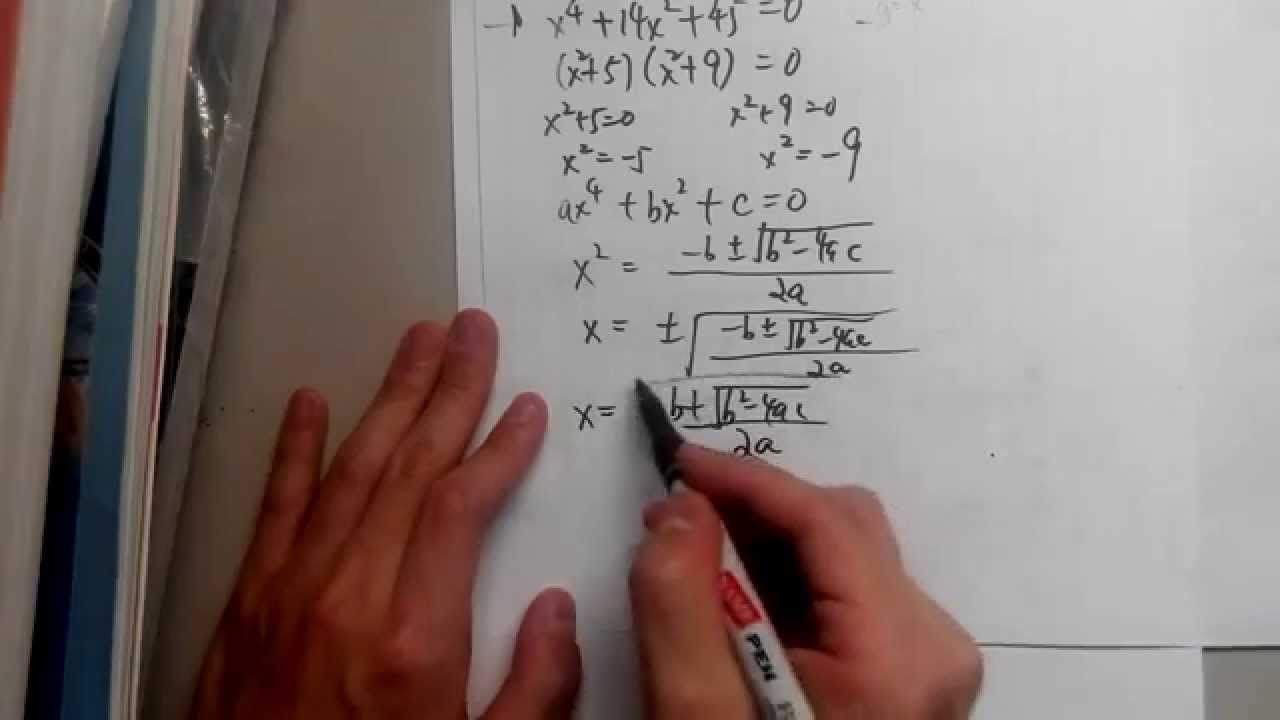 → x⁴ + 14x² + 45 = 0
(x² + 5)(x² + 9) = 0
x² + 5 = 0    x² + 9 = 0
x² = -5    x² = -9
ax⁴ + bx² + c = 0
x² = (-b ± √(b² - 4ac)) / 2a
x = ± √((-b ± √(b² - 4ac)) / 2a)
x = b + √(b² - 4ac) / 2a
PEN